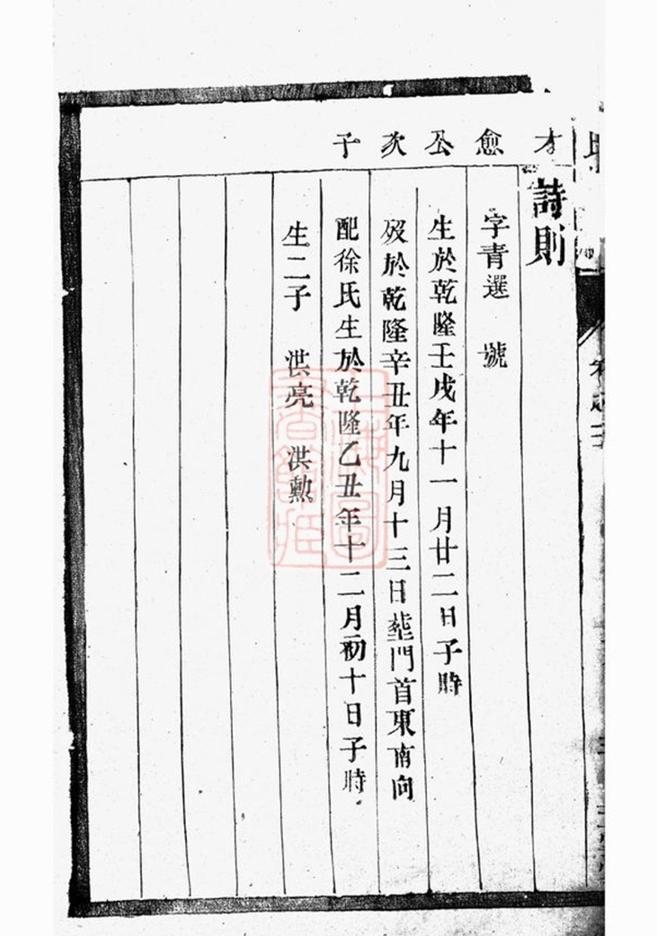 才愈公次子
詩則
字青選　號
生於乾隆壬戌年十一月廿二日子時
歿於乾隆辛丑年九月十三日塟門首東南向
配徐氏生於乾隆乙丑年十二月初十日子時
生二子　洪亮　洪勲